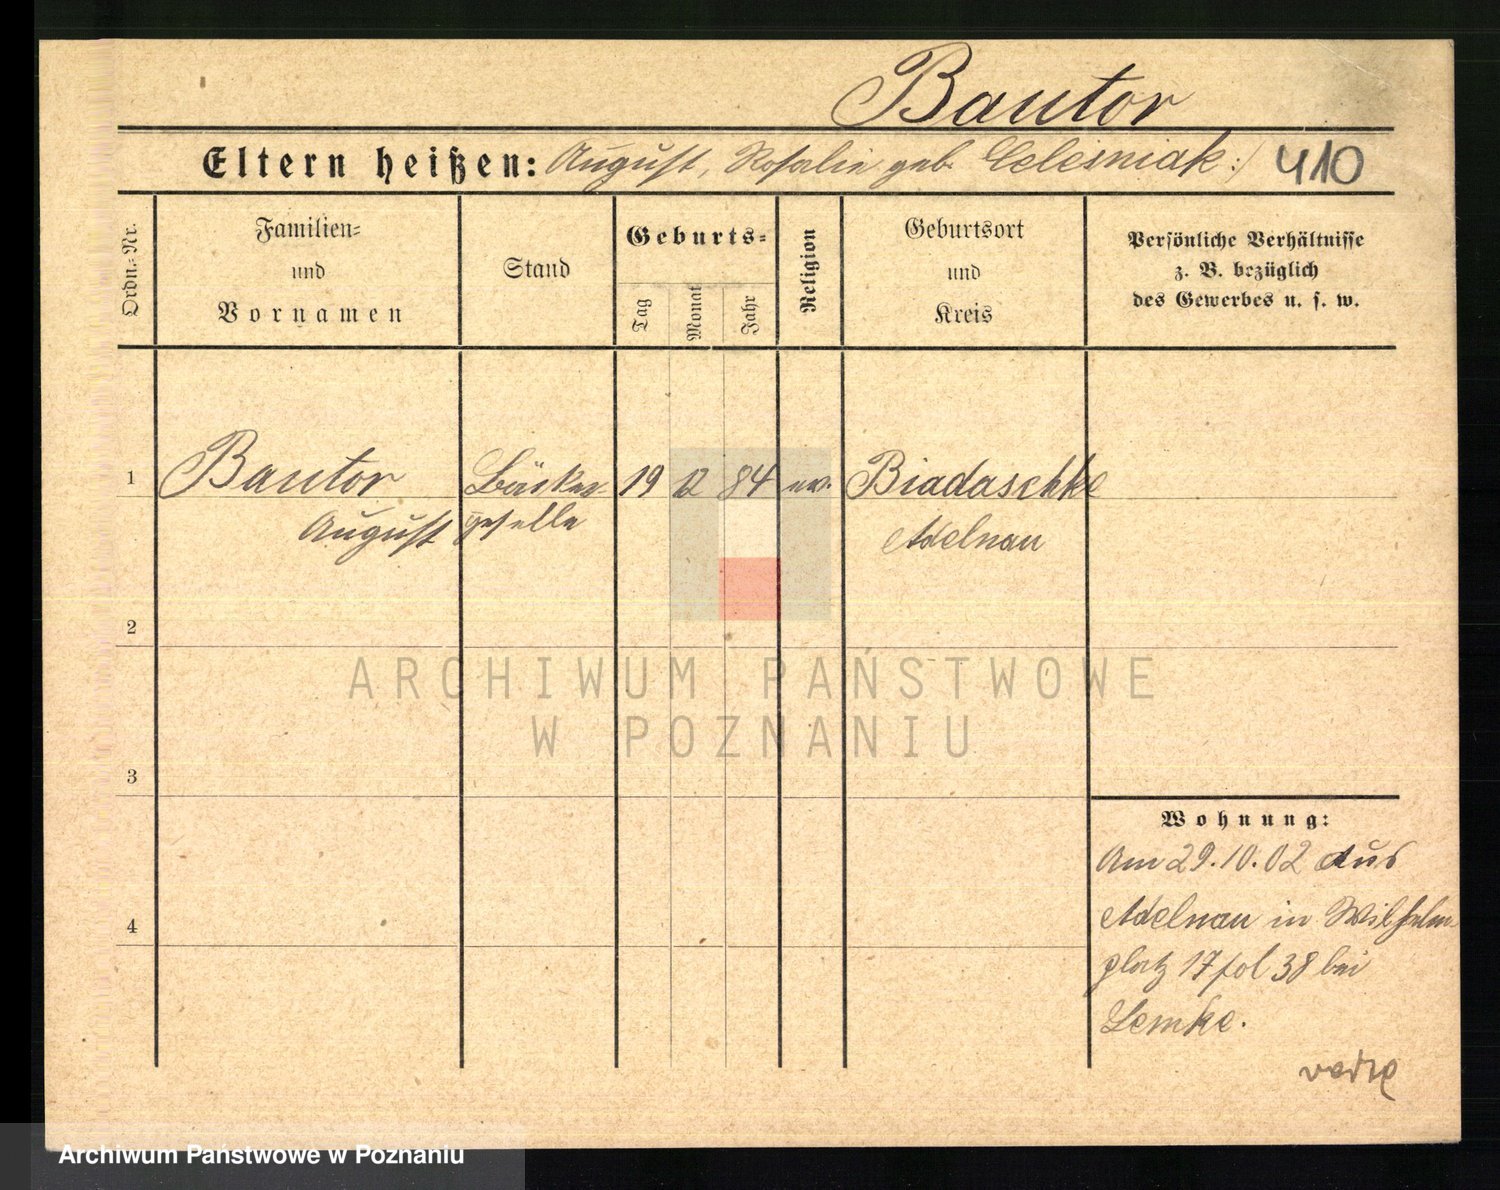 Bautor
Eltern heißen: August, Rosalie geb. Celesniak :/ 410
Ordn.-Nr.
Familien-
und
Vornamen
Stand
Geburts-
Tag
Monat
Jahr
Religion
Geburtsort
und
Kreis
Persönliche Verhältnisse
z. B. bezüglich
des Gewerbes u. s. w.
1 Bautor Bäcker- 19 12 84 ev. Biadaschke
August geselle Adelnau
2
ARCHIWUM PAŃSTWOWE
W POZNANIU
3
Wohnung:
Am 29.10.02 aus
4 Adelnau in Wilhelm-
platz 17 fol 38 bei
Lemke.
Archiwum Państwowe w Poznaniu